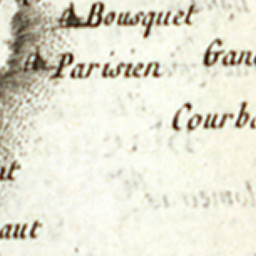 Bousquet
Parisien Gan
Courb
ut
aut